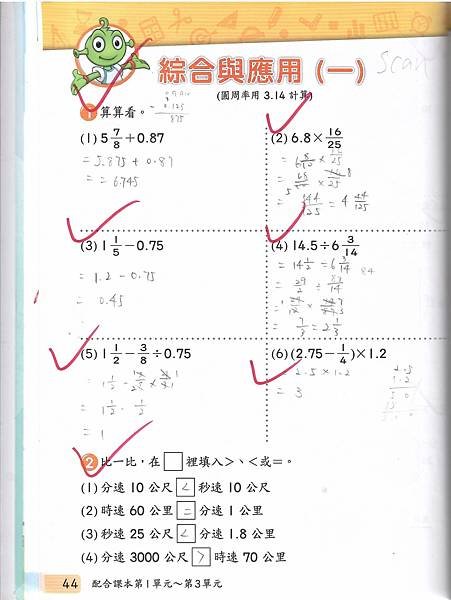 綜合與應用(一)
Scan
(圓周率用 3.14 計算)
1 算算看。
0.125
875
(1) 5 7/8 + 0.87
= 5.875 + 0.87
= = 6.745
(2) 6.8 × 16/25
544/125 = 4 44/125
(3) 1 1/5 − 0.75
= 1.2 − 0.75
= 0.45
(4) 14.5 ÷ 6 3/14
= 14 1/2 ÷ 6 3/14
= 29/2 ÷
= 7/3 = 2 1/3
(5) 1 1/2 − 3/8 ÷ 0.75
= 1 1/2 - 1/2
= 1
(6) (2.75 − 1/4) × 1.2
2.5 × 1.2
= 3
2.5
1.2
5 0
2 比一比,在□裡填入>、<或=。
(1) 分速 10 公尺 < 秒速 10 公尺
(2) 時速 60 公里 = 分速 1 公里
(3) 秒速 25 公尺 < 分速 1.8 公里
(4) 分速 3000 公尺 > 時速 70 公里
44 配合課本第1單元~第3單元